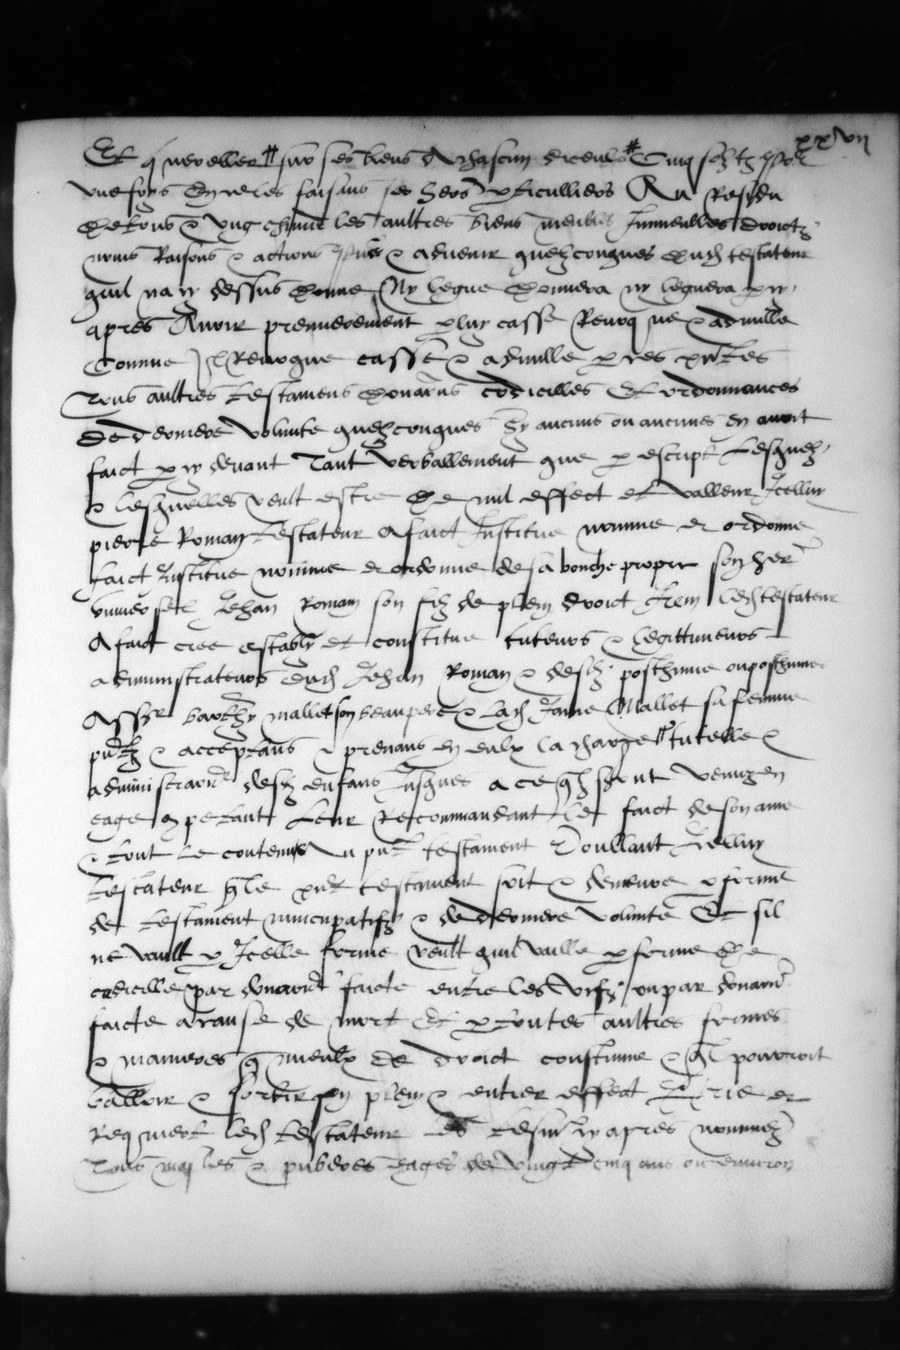 xxvii
Et q sur ses biens A chascun diceulx Cinq solz tz pour
une foys En ce les faisans ses hers particulliers Au Residu
De tous & Ung chūne les aultres biens meubles Immeubles droictz
noms Raisons & actions pñs & advenir quelzconques dud testateur
quil na cy dessus donne Ny legue donnera ny leguera cy
apres Avoir premierement p luy casse Revoque & adnulle
Comme Il Revoque casse & adnulle p ces pñtes
Tous aultres testamens donaōns codicilles Et ordonnances
De derniere volunte quelzconques Sy aucuns ou aucunes en avoit
faict p cy devant Tant verballement que p escript Lesquelz
& lesquelles veult estre de nul effect et valleur Icelluy
pierre Roman testateur A faict Institue nomme et ordonne
faict Institue nomme et ordonne de sa bouche propre son her
universel Jehan Roman son filz de plein droict Item led testateur
A faict cree estably et constitue tuteurs & legittimeurs
administrateurs dud Jehan Roman & desd posthume ou posthumes
Assr barthy mallet son beaupere & lad Jane Mallet sa femme
pñtz & acceptans & prenans en eulx la charge tutelle &
administraōn desd enfans Jusques a ce qlz soynt venuz en
eage competant Leur Recommandant le faict de son ame
& tout le contenu Au pñt testament Voullant Icelluy
testateur q le pñt testament soit & demeure p forme
de testament nuncupatifz & de derniere volunte Et sil
ne vault p Icelle forme veult quil vaille p forme de
codicille par donaōn faicte entre les vifz ou par donaōn
faicte a cause de mort Et p toutes aultres formes
& manieres q mieulx de droict coustume & ql pourroit
valloir & sortir son plein & entier effect Prie et
Requiert led testateur les tesmz cy apres nommez
Tous masles & puberes eagés de vingt cinq ans ou environ